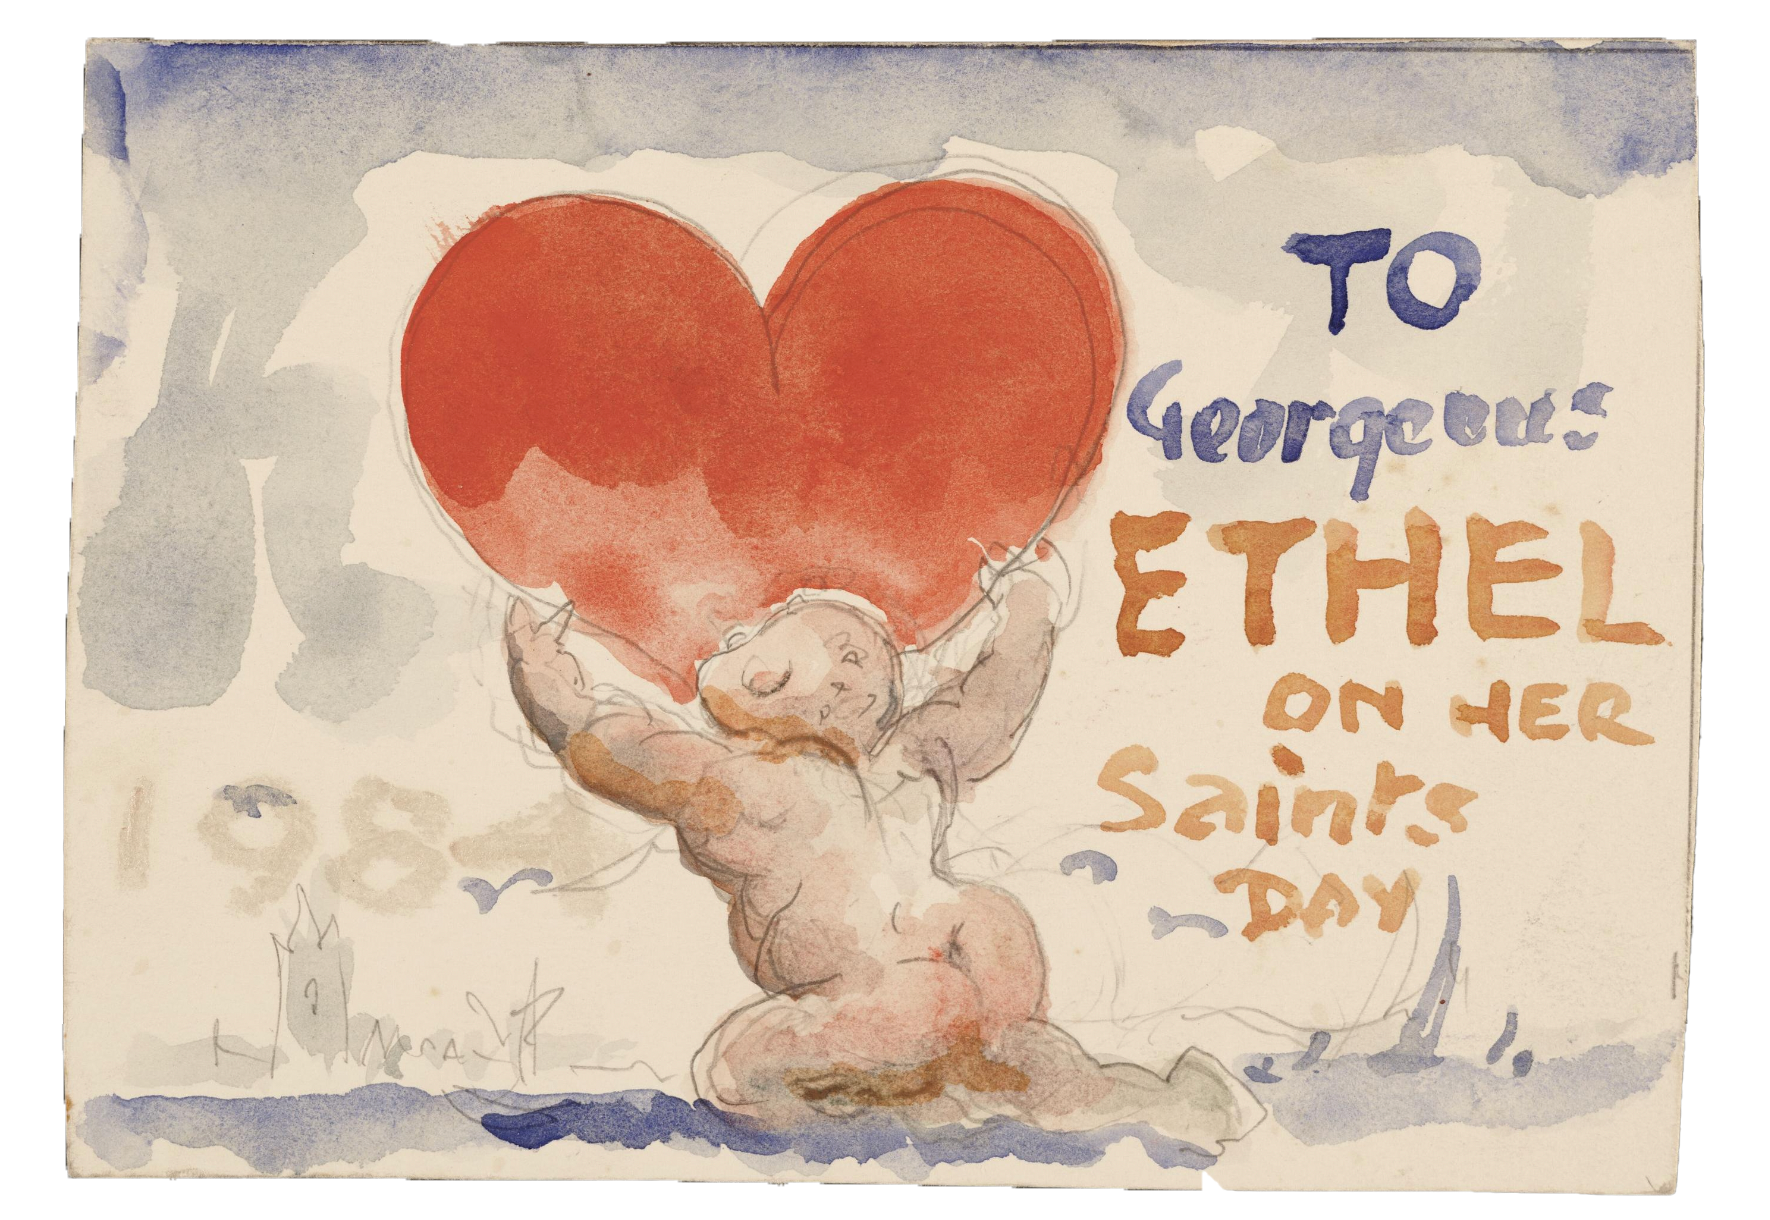 TO
Georgeous
ETHEL
ON HER
Saints
DAY
1984